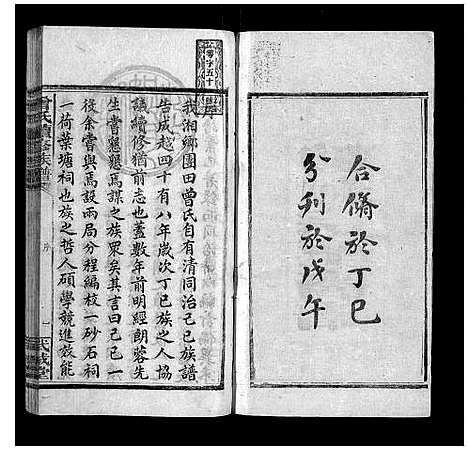 合脩於丁巳
分刊於戊午
寧字五十
我湘鄉團田曾氏自有清同治己巳族譜
告成越四十有八年歲次丁巳族之人協
議續修猶前志也蓋數年前明經朗蓉先
生嘗懇懇焉謀之族眾矣其言曰己巳一
役余嘗與焉設兩局分程編校一砂石祠
一荷葉塘祠也族之哲人碩學競進族能
曾氏續修族譜
序
一
武城堂